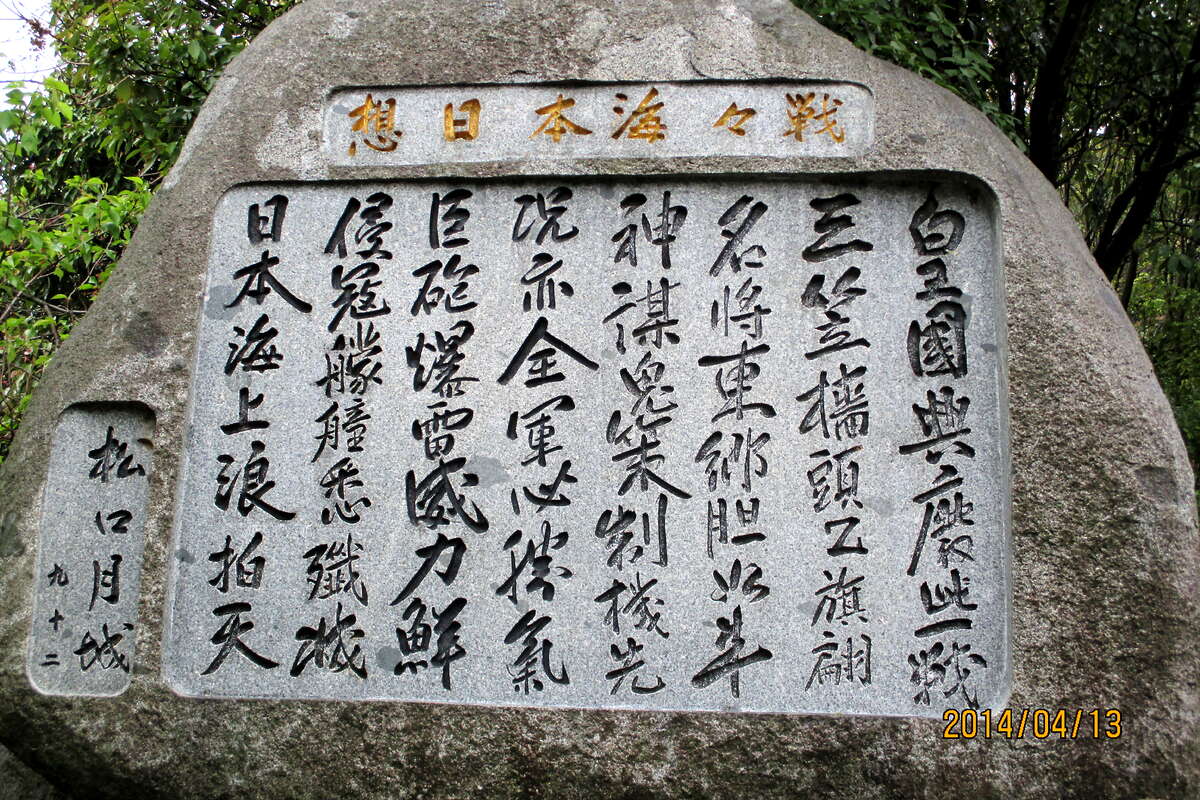 想日本海々戦
皇國興廢此一戦
三笠檣頭乙旗翩
名将東郷胆如斗
神謀鬼策制機先
況亦全軍必勝氣
巨砲爆雷威力鮮
侵寇艨艟悉殲滅
日本海上浪拍天
松口月城
九十二
2014/04/13